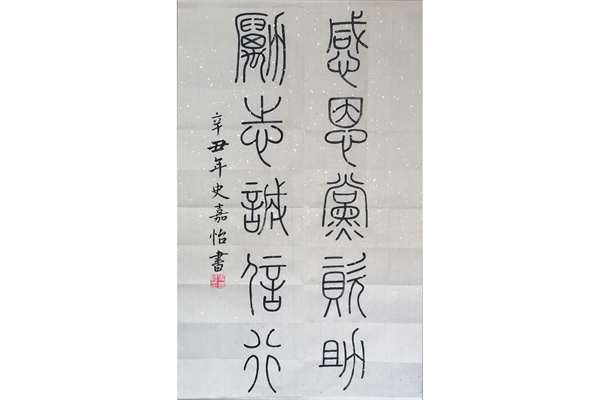 感恩黨資助
勵志誠信行
辛丑年史嘉怡書